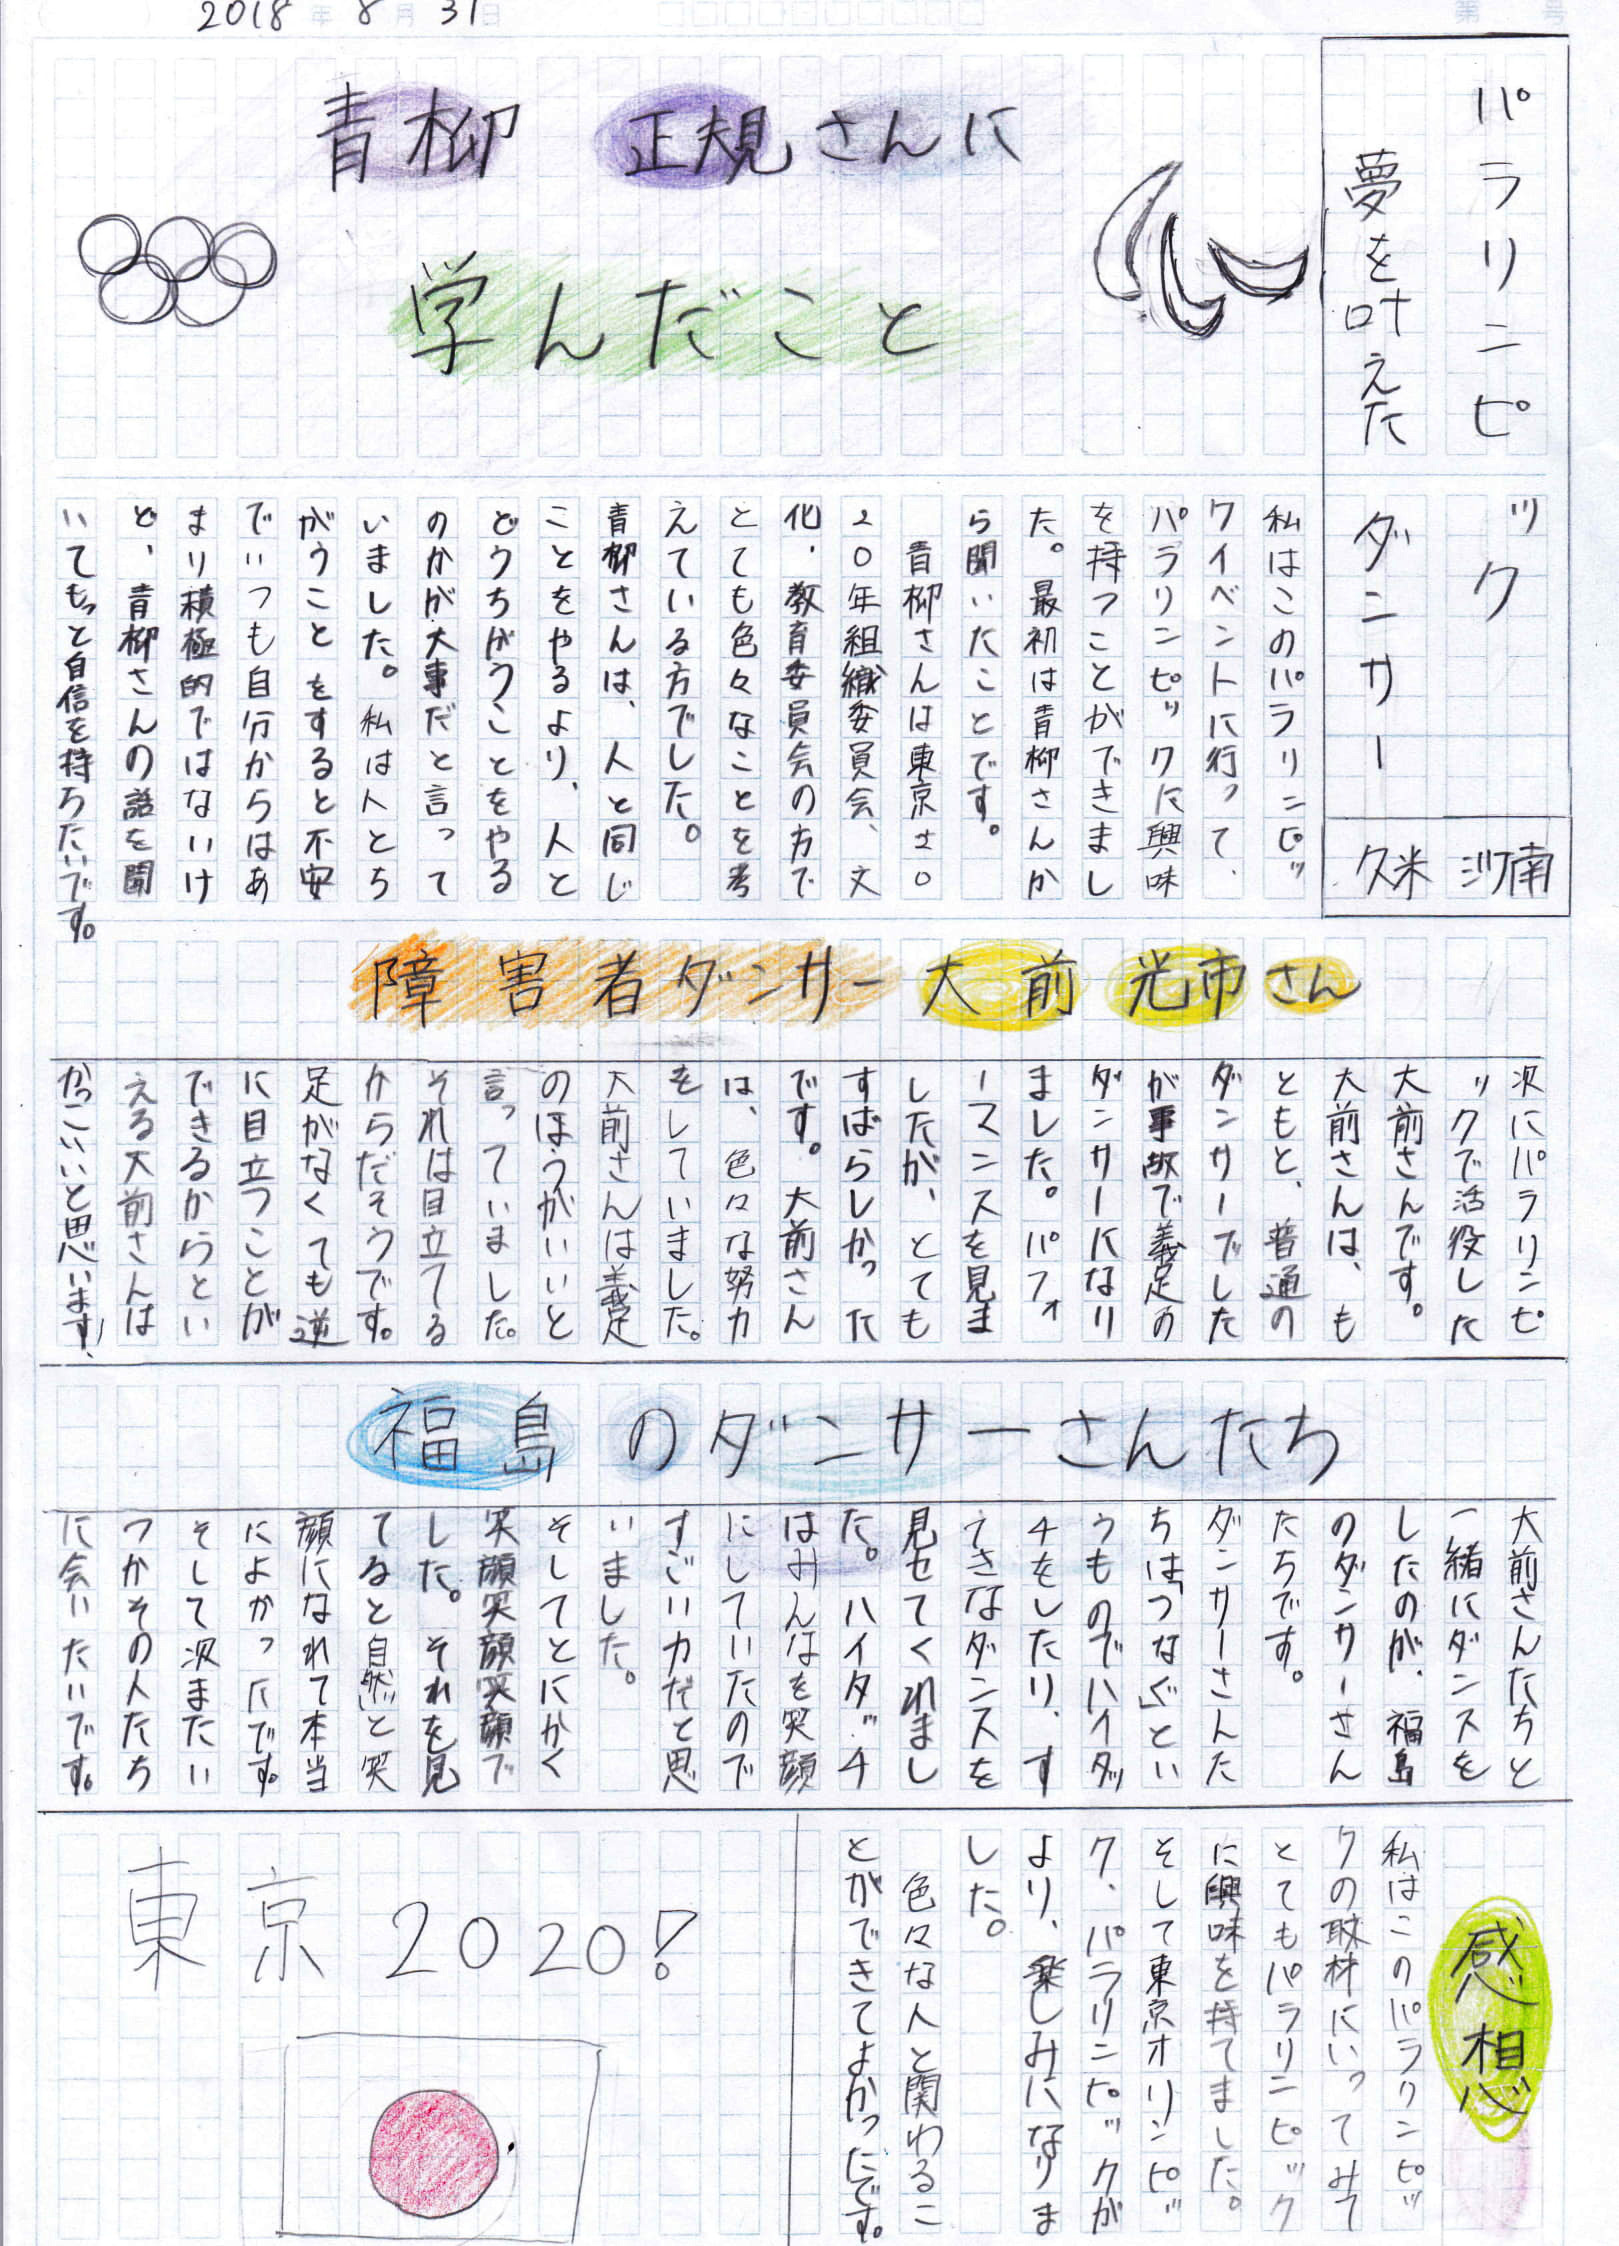 2018年8月31日
第 号
パラリンピック
夢を叶えたダンサー
久米 沙南
青柳 正規さんに
学んだこと
私はこのパラリンピッ
クイベントに行って、
パラリンピックに興味
を持つことができまし
た。最初は青柳さんか
ら聞いたことです。
青柳さんは東京20
20年組織委員会、文
化、教育委員会の方で
とても色々なことを考
えている方でした。
青柳さんは、人と同じ
ことをやるより、人と
どうちがうことをやる
のかが大事だと言って
いました。私は人とち
がうことをすると不安
でいつも自分からはあ
まり積極的ではないけ
ど、青柳さんの話を聞
いてもっと自信を持ちたいです。
障害者ダンサー大前光市さん
次にパラリンピ
ックで活役した
大前さんです。
大前さんは、も
ともと、普通の
ダンサーでした
が事故で義足の
ダンサーになり
ました。パフォ
ーマンスを見ま
したが、とても
すばらしかった
です。大前さん
は、色々な努力
をしていました。
大前さんは義足
のほうがいいと
言っていました。
それは目立てる
からだそうです。
足がなくても逆
に目立つことが
できるからとい
える大前さんは
かっこいいと思います!
福島のダンサーさんたち
大前さんたちと
一緒にダンスを
したのが、福島
のダンサーさん
たちです。
ダンサーさんた
ちは「つなぐ」とい
うものでハイタッ
チをしたり、す
てきなダンスを
見せてくれまし
た。ハイタッチ
はみんなを笑顔
にしていたので
すごい力だと思
いました。
そしてとにかく
笑顔笑顔笑顔で
した。それを見
てると自然と笑
顔になれて本当
によかったです。
そして次またい
つかその人たち
に会いたいです。
感想
私はこのパラリンピッ
クの取材にいってみて
とてもパラリンピック
に興味を持てました。
そして東京オリンピッ
ク、パラリンピックが
より、楽しみになりま
した。
色々な人と関わるこ
とができてよかったです。
東京2020!